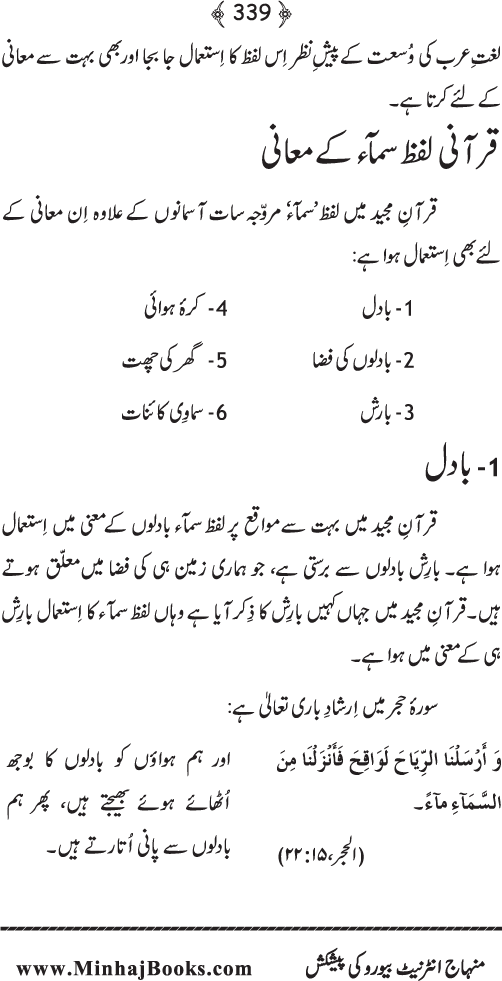 ﴿ 339 ﴾
لغتِ عرب کی وُسعت کے پیشِ نظر اِس لفظ کا اِستعمال جا بجا اور بھی بہت سے معانی
کے لئے کرتا ہے۔
قرآنی لفظ سمآء کے معانی
قرآنِ مجید میں لفظ ’سمآء‘ مروّجہ سات آسمانوں کے علاوہ اِن معانی کے
لئے بھی اِستعمال ہوا ہے:
1- بادل
2- بادلوں کی فضا
3- بارش
4- کرۂ ہوائی
5- گھر کی چھت
6- سماوِی کائنات
1- بادل
قرآنِ مجید میں بہت سے مواقع پر لفظ سمآء بادلوں کے معنی میں اِستعمال
ہوا ہے۔ بارِش بادلوں سے برستی ہے، جو ہماری زمین ہی کی فضا میں معلّق ہوتے
ہیں۔ قرآنِ مجید میں جہاں کہیں بارِش کا ذِکر آیا ہے وہاں لفظ سمآء کا اِستعمال بارِش
ہی کے معنی میں ہوا ہے۔
سورۂ حجر میں اِرشادِ باری تعالیٰ ہے:
وَ أَرْسَلْنَا الرِّيَاحَ لَوَاقِحَ فَأَنْزَلْنَا مِنَ
السَّمَآءِ مَآءً۔
(الحجر، ۱۵: ۲۲)
اور ہم ہواؤں کو بادلوں کا بوجھ
اُٹھائے ہوئے بھیجتے ہیں، پھر ہم
بادلوں سے پانی اُتارتے ہیں۔
منہاج انٹرنیٹ بیورو کی پیشکش
www.MinhajBooks.com